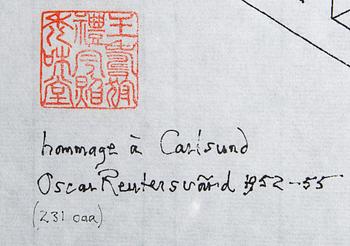 hommage à Carlsund
Oscar Reutersvärd 1952-55
(231 oaa)